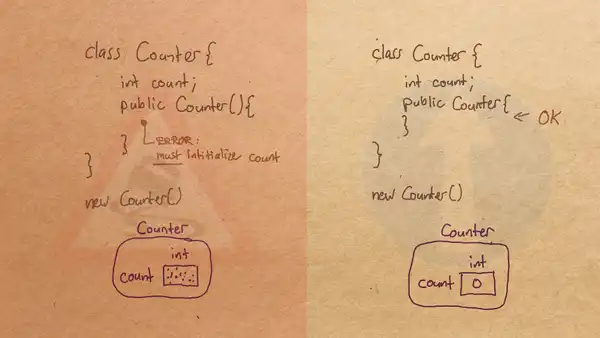 class Counter {
int count;
public Counter() {
}
ERROR:
must intitialize count
}
new Counter()
Counter
int
count
class Counter {
int count;
public Counter {
}
← OK
}
new Counter()
Counter
int
count 0